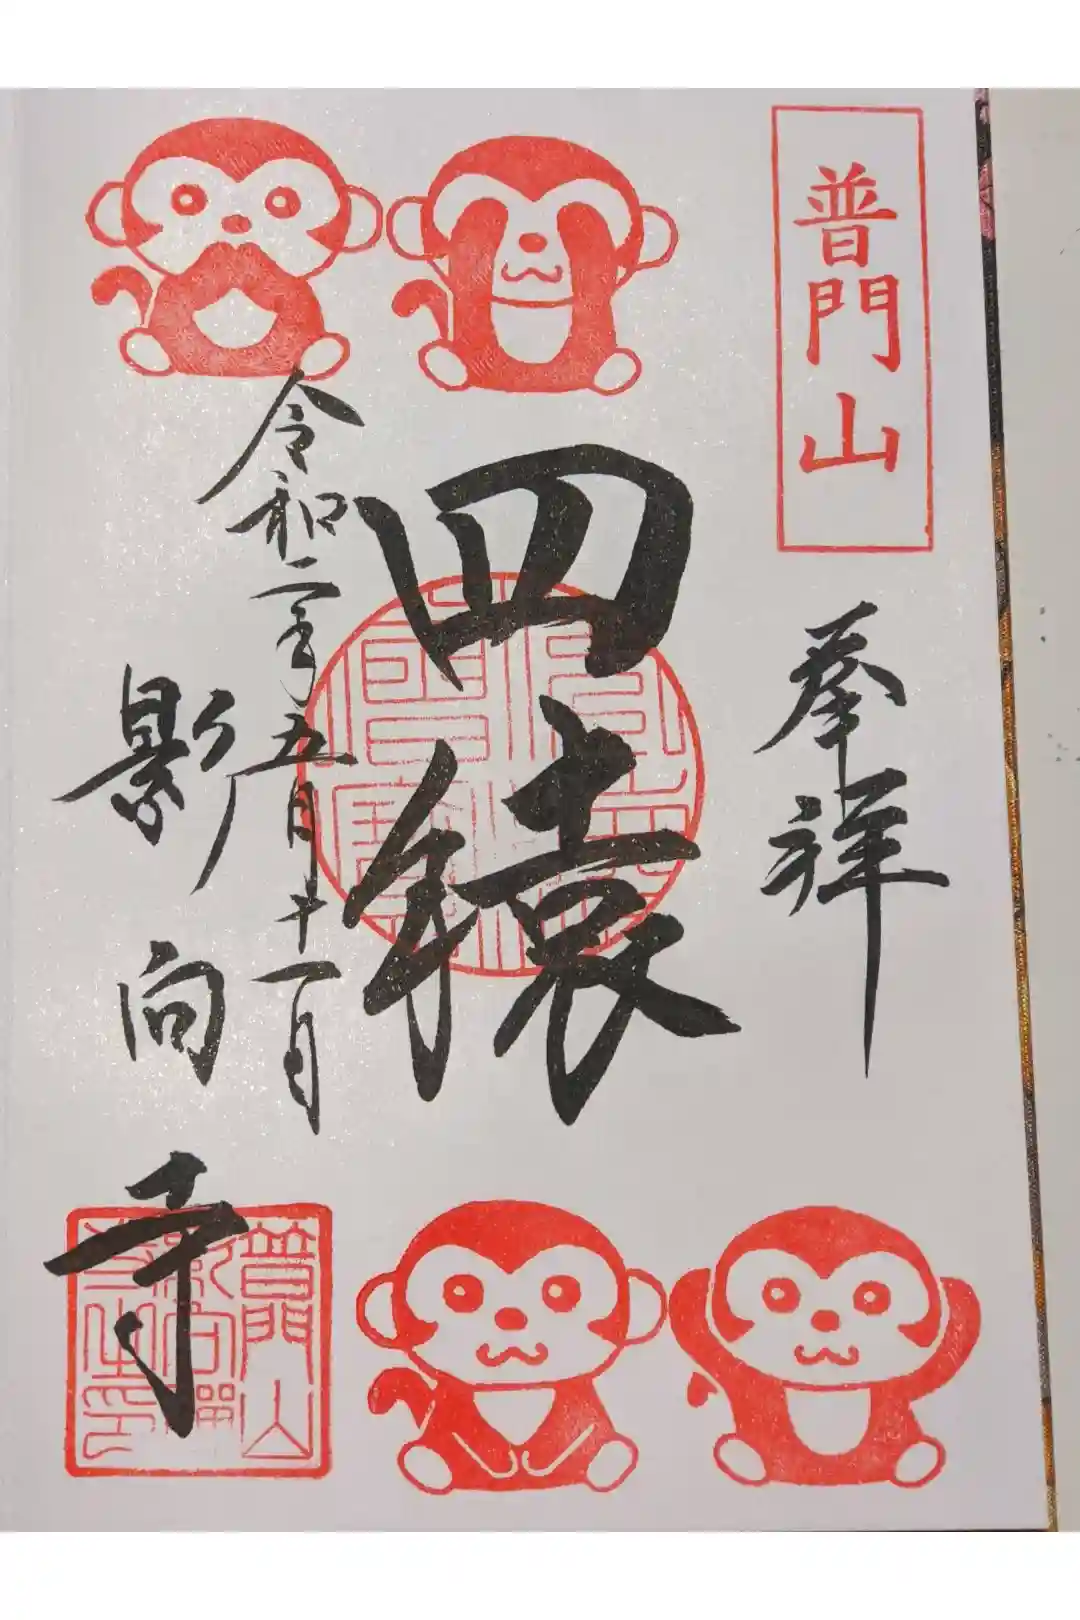 普門山
奉拝
四猿
令和二年五月十一日
影向寺
普門山
影向禪
寺之印